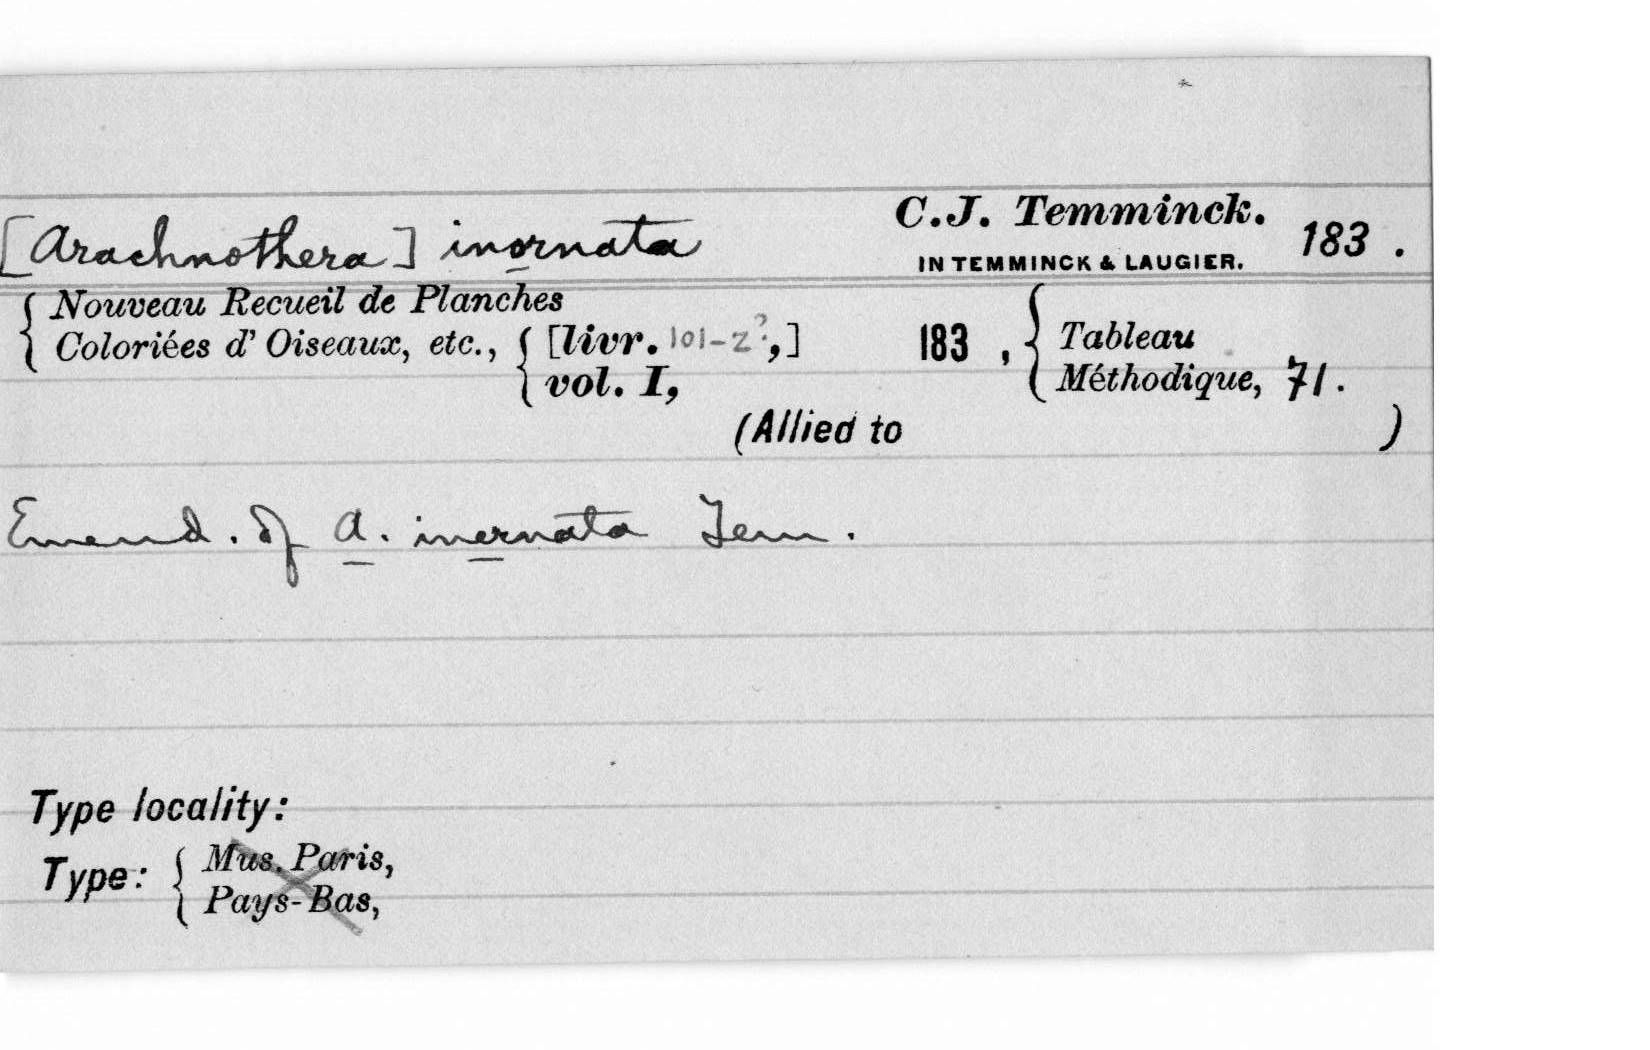 [Arachnothera] inornata C.J. Temminck. 183 .
IN TEMMINCK & LAUGIER.
Nouveau Recueil de Planches
Coloriées d' Oiseaux, etc., [livr. 101-2?,] 183 , Tableau
vol. I, Méthodique, 71.
(Allied to )
Emend. of A. inernata Tem.
Type locality:
Type: Mus. Paris,
Pays-Bas,